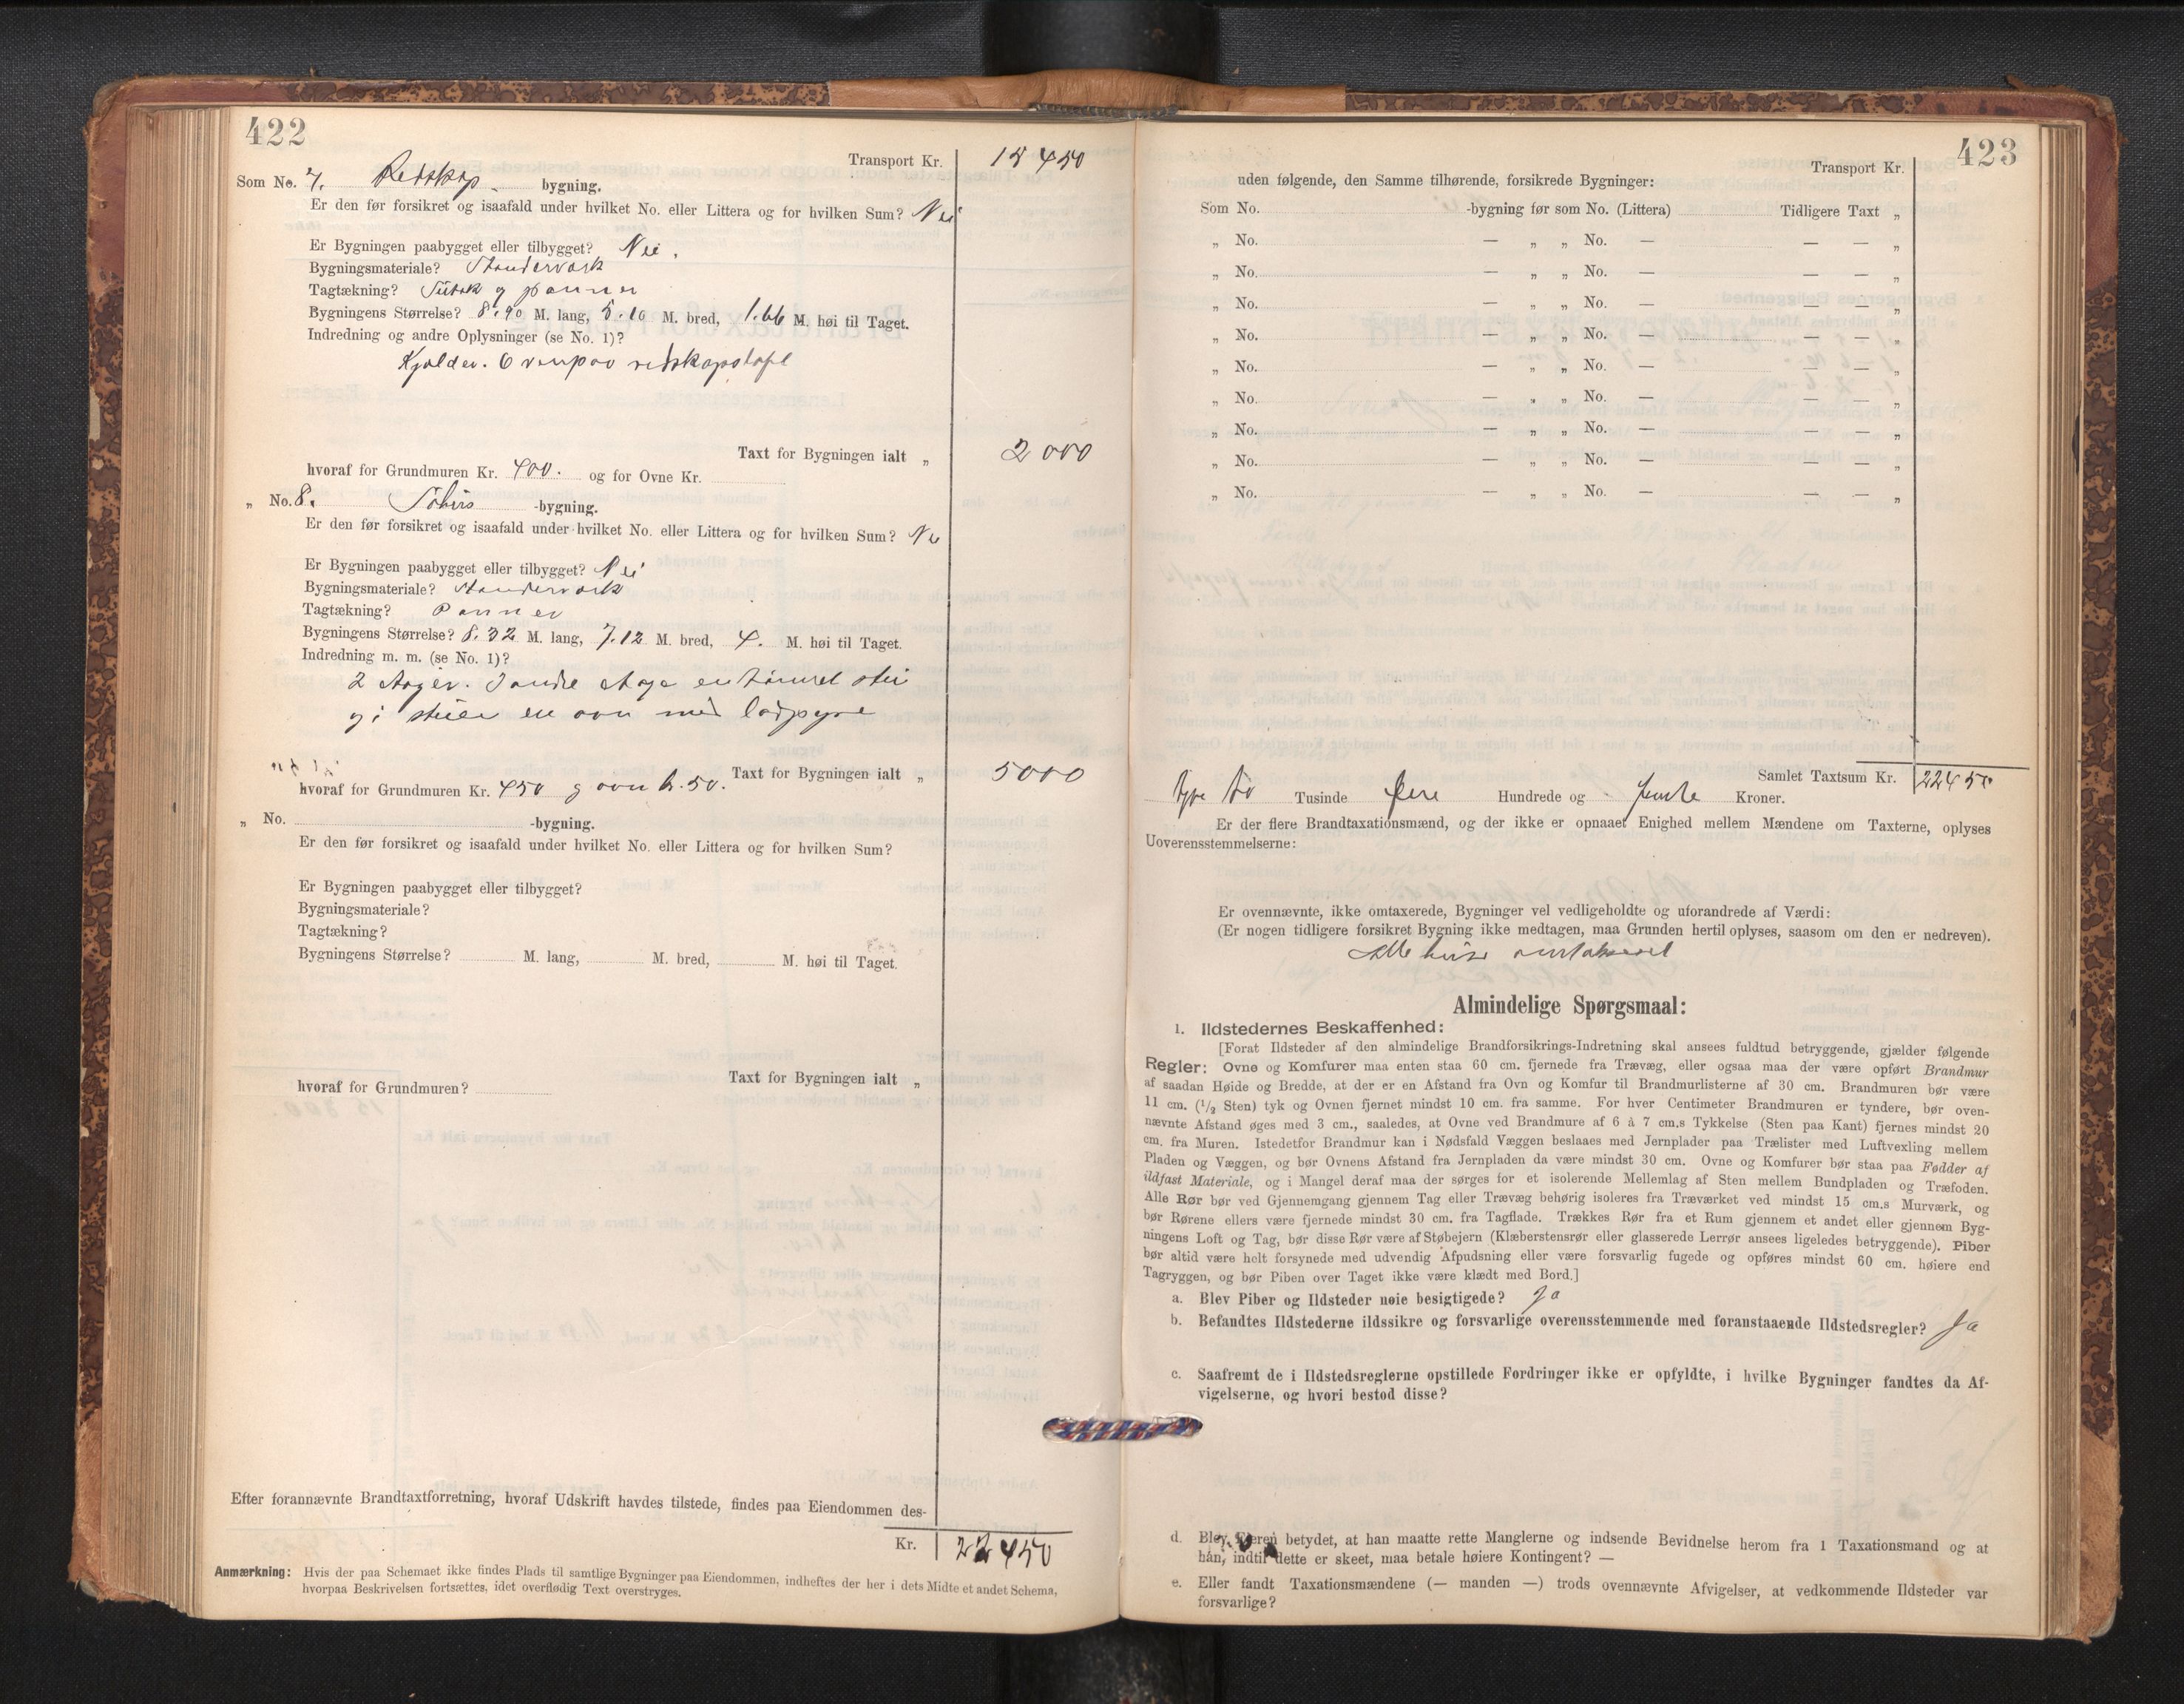 422
Transport Kr. 15 450
Som No. 7. Redskap- bygning.
Er den før forsikret og isaafald under hvilket No. eller Littera og for hvilken Sum? Nei
Er Bygningen paabygget eller tilbygget? Nei.
Bygningsmateriale? Standervärk
Tagtækning? og panner
Bygningens Størrelse? 8.90 M. lang, 5.10 M. bred, 1.66 M. høi til Taget.
Indredning og andre Oplysninger (se No. 1)?
Kjælder. Ovenpaa redskapsloft
Taxt for Bygningen ialt „ 2 000
hvoraf for Grundmuren Kr. 400. og for Ovne Kr.
„ No. 8. -bygning.
Er den før forsikret og isaafald under hvilket No. eller Littera og for hvilken Sum? Nei
Er Bygningen paabygget eller tilbygget? Nei
Bygningsmateriale? Standervärk
Tagtækning? Panner
Bygningens Størrelse? 8.32 M. lang, 7.12 M. bred, 4. M. høi til Taget.
Indredning m. m. (se No. 1)?
2 etager. I andre etage en
og i en ovn med
Taxt for Bygningen ialt „ 5000
hvoraf for Grundmuren Kr. 450 g ovn kr. 50.
„ No. -bygning.
Er den før forsikret og isaafald under hvilket No. eller Littera og for hvilken Sum?
Er Bygningen paabygget eller tilbygget?
Bygningsmateriale?
Tagtækning?
Bygningens Størrelse? M. lang, M. bred, M. høi til Taget.
Taxt for Bygningen ialt „
hvoraf for Grundmuren?
Efter forannævnte Brandtaxtforretning, hvoraf Udskrift havdes tilstede, findes paa Eiendommen des-
Kr. 22450
Anmærkning: Hvis der paa Schemaet ikke findes Plads til samtlige Bygninger paa Eiendommen, indheftes der her i dets Midte et andet Schema,
hvorpaa Beskrivelsen fortsættes, idet overflødig Text overstryges.
423
Transport Kr.
uden følgende, den Samme tilhørende, forsikrede Bygninger:
Som No. -bygning før som No. (Littera) Tidligere Taxt „
„ No. — „ „ No. — — — „
„ No. — „ „ No. — — — „
„ No. — „ „ No. — — — „
„ No. — „ „ No. — — — „
„ No. — „ „ No. — — — „
„ No. — „ „ No. — — — „
„ No. — „ „ No. — — — „
„ No. — „ „ No. — — — „
„ No. — „ „ No. — — — „
Samlet Taxtsum Kr. 22450
tyve to Tusinde fire Hundrede og femti Kroner.
Er der flere Brandtaxationsmænd, og der ikke er opnaaet Enighed mellem Mændene om Taxterne, oplyses
Uoverensstemmelserne:
Er ovennævnte, ikke omtaxerede, Bygninger vel vedligeholdte og uforandrede af Værdi:
(Er nogen tidligere forsikret Bygning ikke medtagen, maa Grunden hertil oplyses, saasom om den er nedreven).
Alle huse omtakseret
Almindelige Spørgsmaal:
1. Ildstedernes Beskaffenhed:
[Forat Ildsteder af den almindelige Brandforsikrings-Indretning skal ansees fuldtud betryggende, gjælder følgende
Regler: Ovne og Komfurer maa enten staa 60 cm. fjernede fra Trævæg, eller ogsaa maa der være opført Brandmur
af saadan Høide og Bredde, at der er en Afstand fra Ovn og Komfur til Brandmurlisterne af 30 cm. Brandmuren bør være
11 cm. (1/2 Sten) tyk og Ovnen fjernet mindst 10 cm. fra samme. For hver Centimeter Brandmuren er tyndere, bør oven-
nævnte Afstand øges med 3 cm., saaledes, at Ovne ved Brandmure af 6 à 7 cm.s Tykkelse (Sten paa Kant) fjernes mindst 20
cm. fra Muren. Istedetfor Brandmur kan i Nødsfald Væggen beslaaes med Jernplader paa Trælister med Luftvexling mellem
Pladen og Væggen, og bør Ovnens Afstand fra Jernpladen da være mindst 30 cm. Ovne og Komfurer bør staa paa Fødder af
ildfast Materiale, og i Mangel deraf maa der sørges for et isolerende Mellemlag af Sten mellem Bundpladen og Træfoden.
Alle Rør bør ved Gjennemgang gjennem Tag eller Trævæg behørig isoleres fra Træværket ved mindst 15 cm.s Murværk, og
bør Rørene ellers være fjernede mindst 30 cm. fra Tagflade. Trækkes Rør fra et Rum gjennem et andet eller gjennem Byg-
ningens Loft og Tag, bør disse Rør være af Støbejern (Klæberstensrør eller glasserede Lerrør ansees ligeledes betryggende). Piber
bør altid være helt forsynede med udvendig Afpudsning eller være forsvarlig fugede og opføres mindst 60 cm. høiere end
Tagryggen, og bør Piben over Taget ikke være klædt med Bord.]
a. Blev Piber og Ildsteder nøie besigtigede? Ja
b. Befandtes Ildstederne ildssikre og forsvarlige overensstemmende med foranstaaende Ildstedsregler? Ja
c. Saafremt de i Ildstedsreglerne opstillede Fordringer ikke er opfyldte, i hvilke Bygninger fandtes da Af-
vigelserne, og hvori bestod disse?
d. Blev Eieren betydet, at han maatte rette Manglerne og indsende Bevidnelse herom fra 1 Taxationsmand og at
han, indtil dette er skeet, maa betale høiere Kontingent? —
e. Eller fandt Taxationsmændene (— manden —) trods ovennævnte Afvigelser, at vedkommende Ildsteder var
forsvarlige?